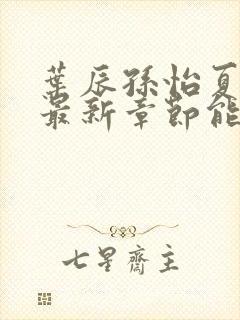 葉辰孫怡夏
最新章節能
七星齋主